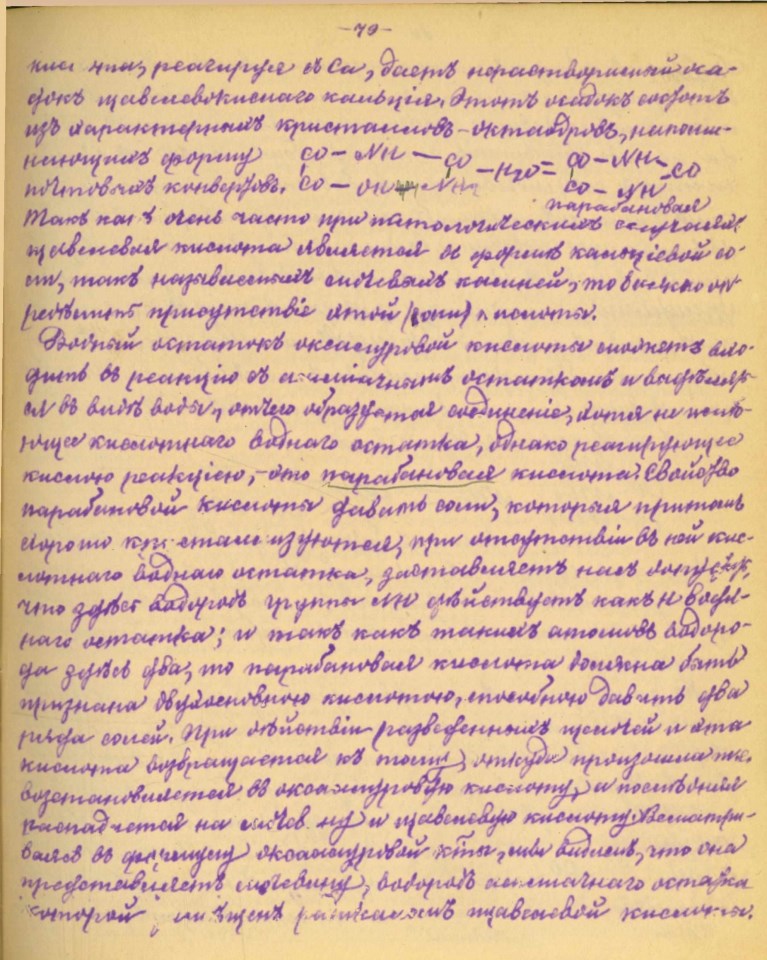 -79-
реагируя съ Ca, даетъ нерастворимый оса-
докъ щавелевокислаго кальція. Этотъ осадокъ состоитъ
изъ характерныхъ кристалловъ - октаэдровъ, напоми-
нающихъ форму CO - NH - CO - H2O = CO - NH - CO
почтовыхъ конвертовъ. CO - OH NH2 CO - NH
парабановая
Такъ какъ очень часто при патологическихъ случаяхъ
щавелевая кислота является въ формѣ кальціевой со-
ли, такъ называемыхъ камней, то можно оп-
редѣлить присутствіе этой кислоты.
Водный остатокъ оксалуровой кислоты можетъ вхо-
дить въ реакцію съ амміачнымъ остаткомъ и выдѣлят-
ся въ видѣ воды, отчего образуется соединеніе, хотя не имѣ-
ющее кислотнаго воднаго остатка, однако реагирующее
кислою реакціею, - это парабановая кислота. Свойство
парабановой кислоты давать соли, которыя притомъ
хорошо кристаллизуются, при отсутствіи въ ней кис-
лотнаго воднаго остатка, заставляетъ насъ допустить,
что здѣсь водородъ группы NH дѣйствуетъ какъ H вод-
наго остатка; и такъ какъ такихъ атомовъ водоро-
да здѣсь два, то парабановая кислота должна быть
признана двухосновною кислотою, способною давать два
ряда солей. При дѣйствіи разведенныхъ щелочей и эта
кислота возвращается къ тому, откуда произошла т.е.
возстановляется въ оксалуровую кислоту, а послѣдняя
распадается на мочевину и щавелевую кислоту. Всматри-
ваясь въ формулу оксалуровой к-ты, мы видимъ, что она
представляетъ мочевину, водородъ амміачнаго остатка
которой замѣщенъ щавелевой кислоты.